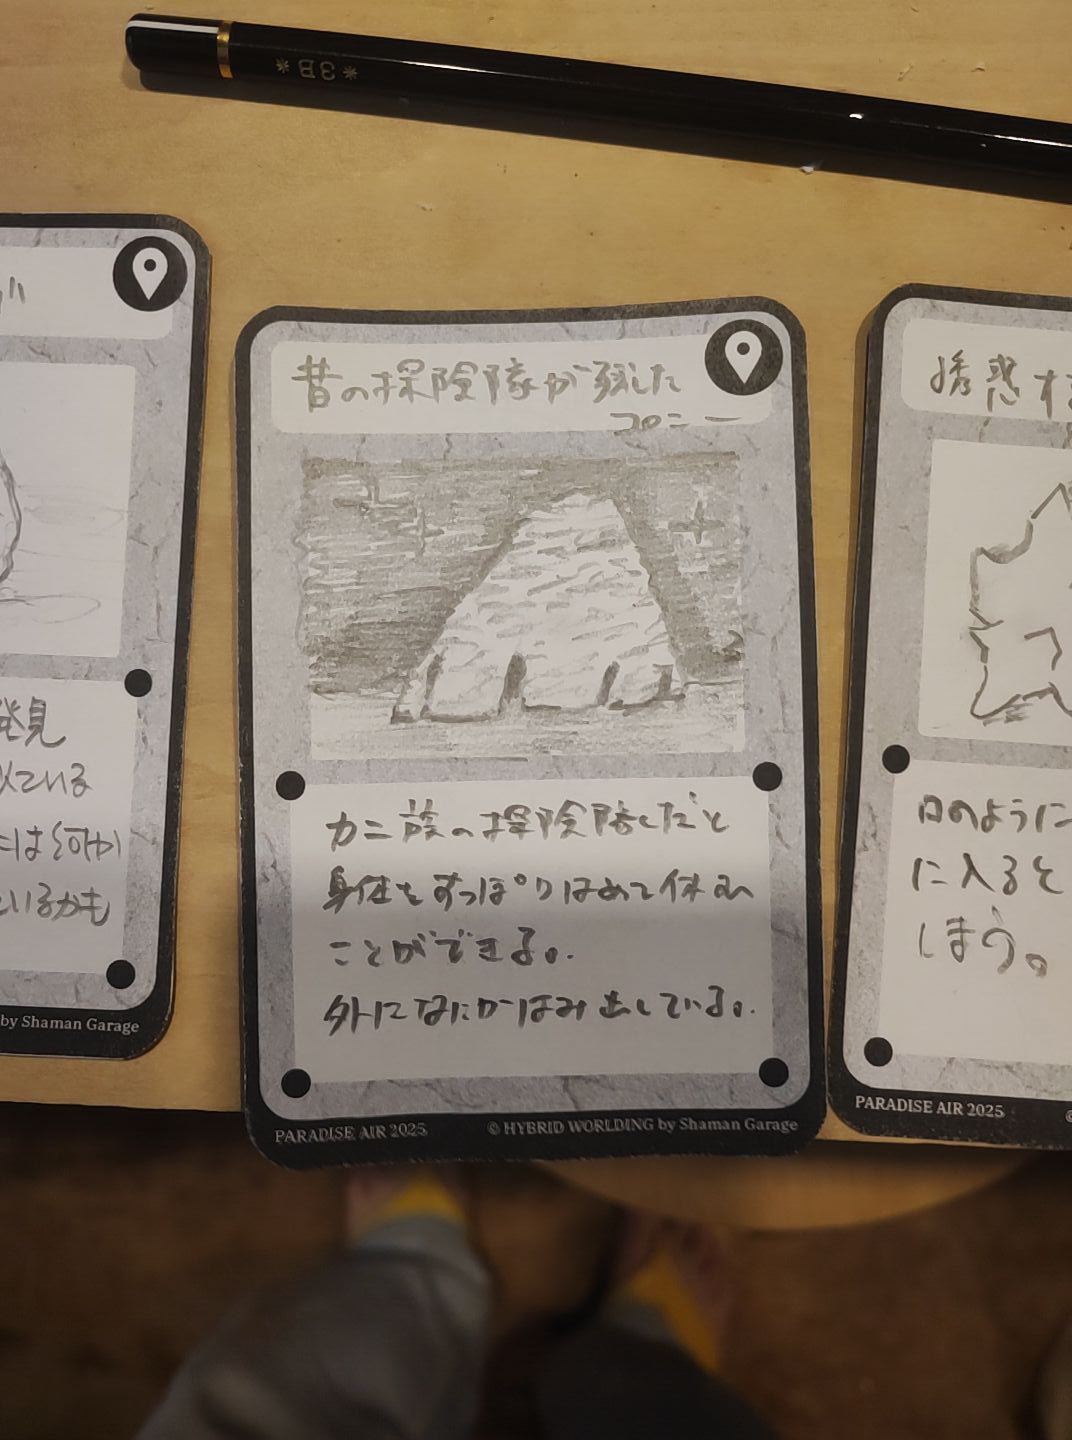 *3B*
昔の探険隊が残した
コロニー
カニ族の探険隊だと
身体をすっぽりはめて休む
ことができる。
外になにかはみ出している。
PARADISE AIR 2025
© HYBRID WORLDING by Shaman Garage
発見
似ている
には何か
いるかも
by Shaman Garage
誘惑する
口のように
に入ると
しまう。
PARADISE AIR 2025
©